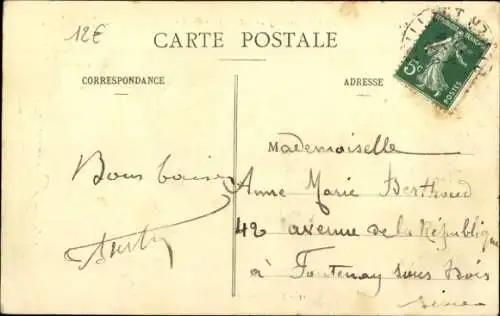 12€
CARTE POSTALE
CORRESPONDANCE
ADRESSE
5c
POSTES
Mademoiselle
Bons baisers
Anne Marie Berthoud
42 avenue de la République
à Fontenay sous Bois
Seine